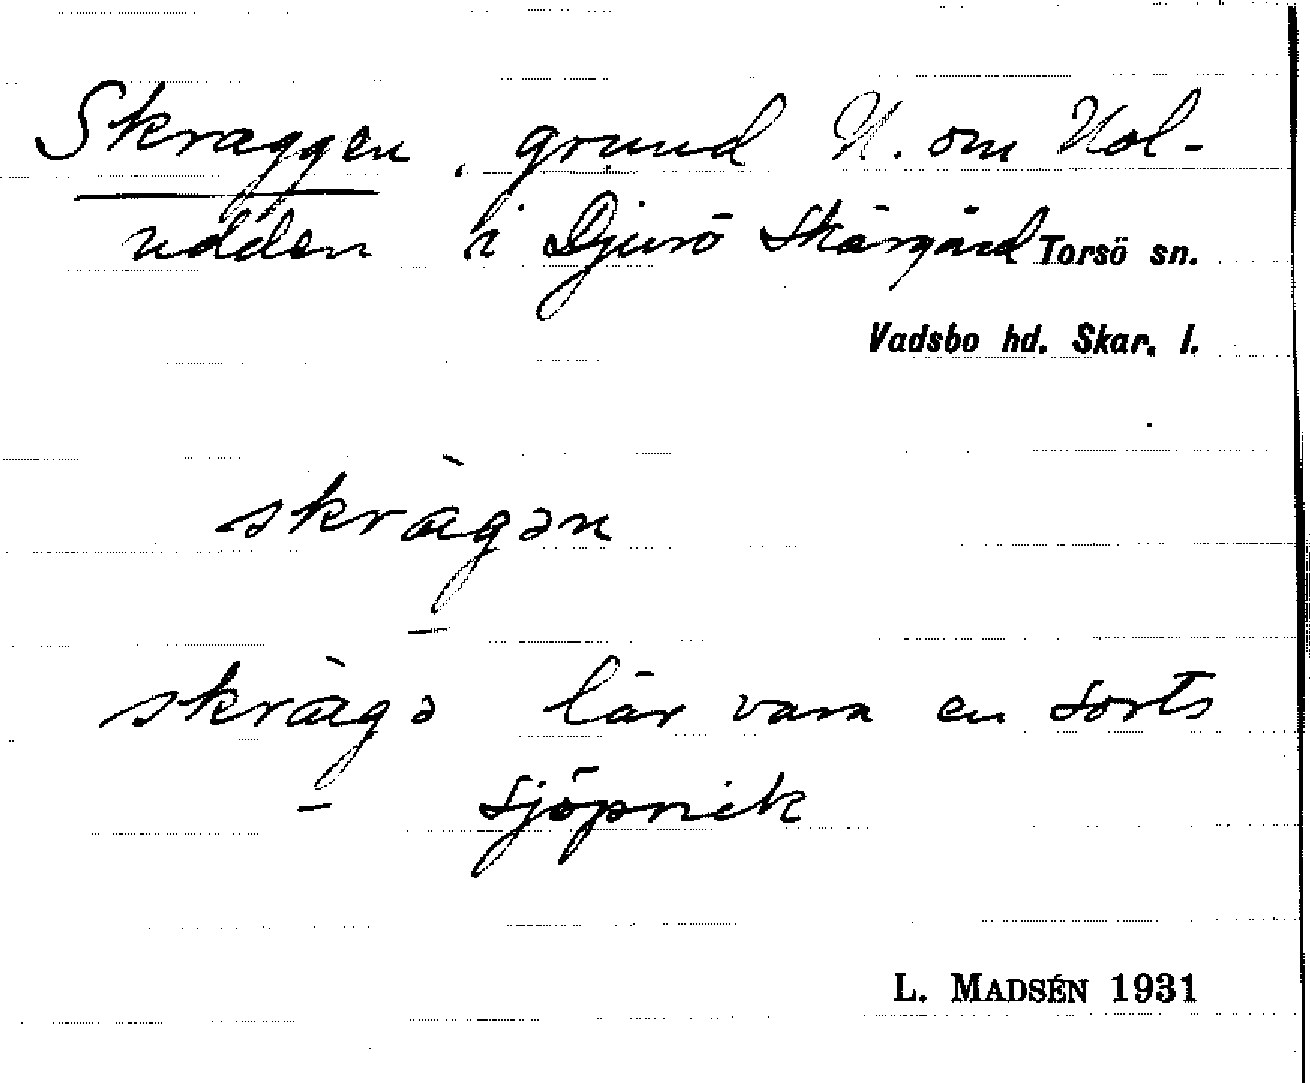 Skraggen, grund N. om Kol-
udden i Djurö Skärgård Torsö sn.
Vadsbo hd. Skar. l.
skràgən
skràgə lär vara en sorts
sjöprick
L. MADSÉN 1931